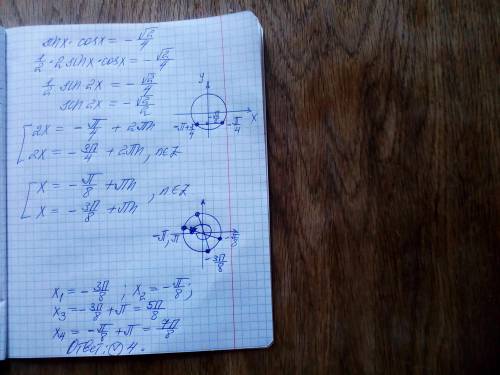 sin x · cos x = - √2/4
1/2 · 2 sin x · cos x = - √2/4
1/2 sin 2x = - √2/4
sin 2x = - √2/2
y
x
- √2/2
-π + π/4
- π/4
[ 2x = - π/4 + 2πn
2x = - 3π/4 + 2πn, n∈Z
[ x = - π/8 + πn
x = - 3π/8 + πn , n∈Z
-π, π
- π/8
- 3π/8
x₁ = - 3π/8 ; x₂ = - π/8 ;
x₃ = - 3π/8 + π = 5π/8
x₄ = - π/8 + π = 7π/8
Ответ: 4.